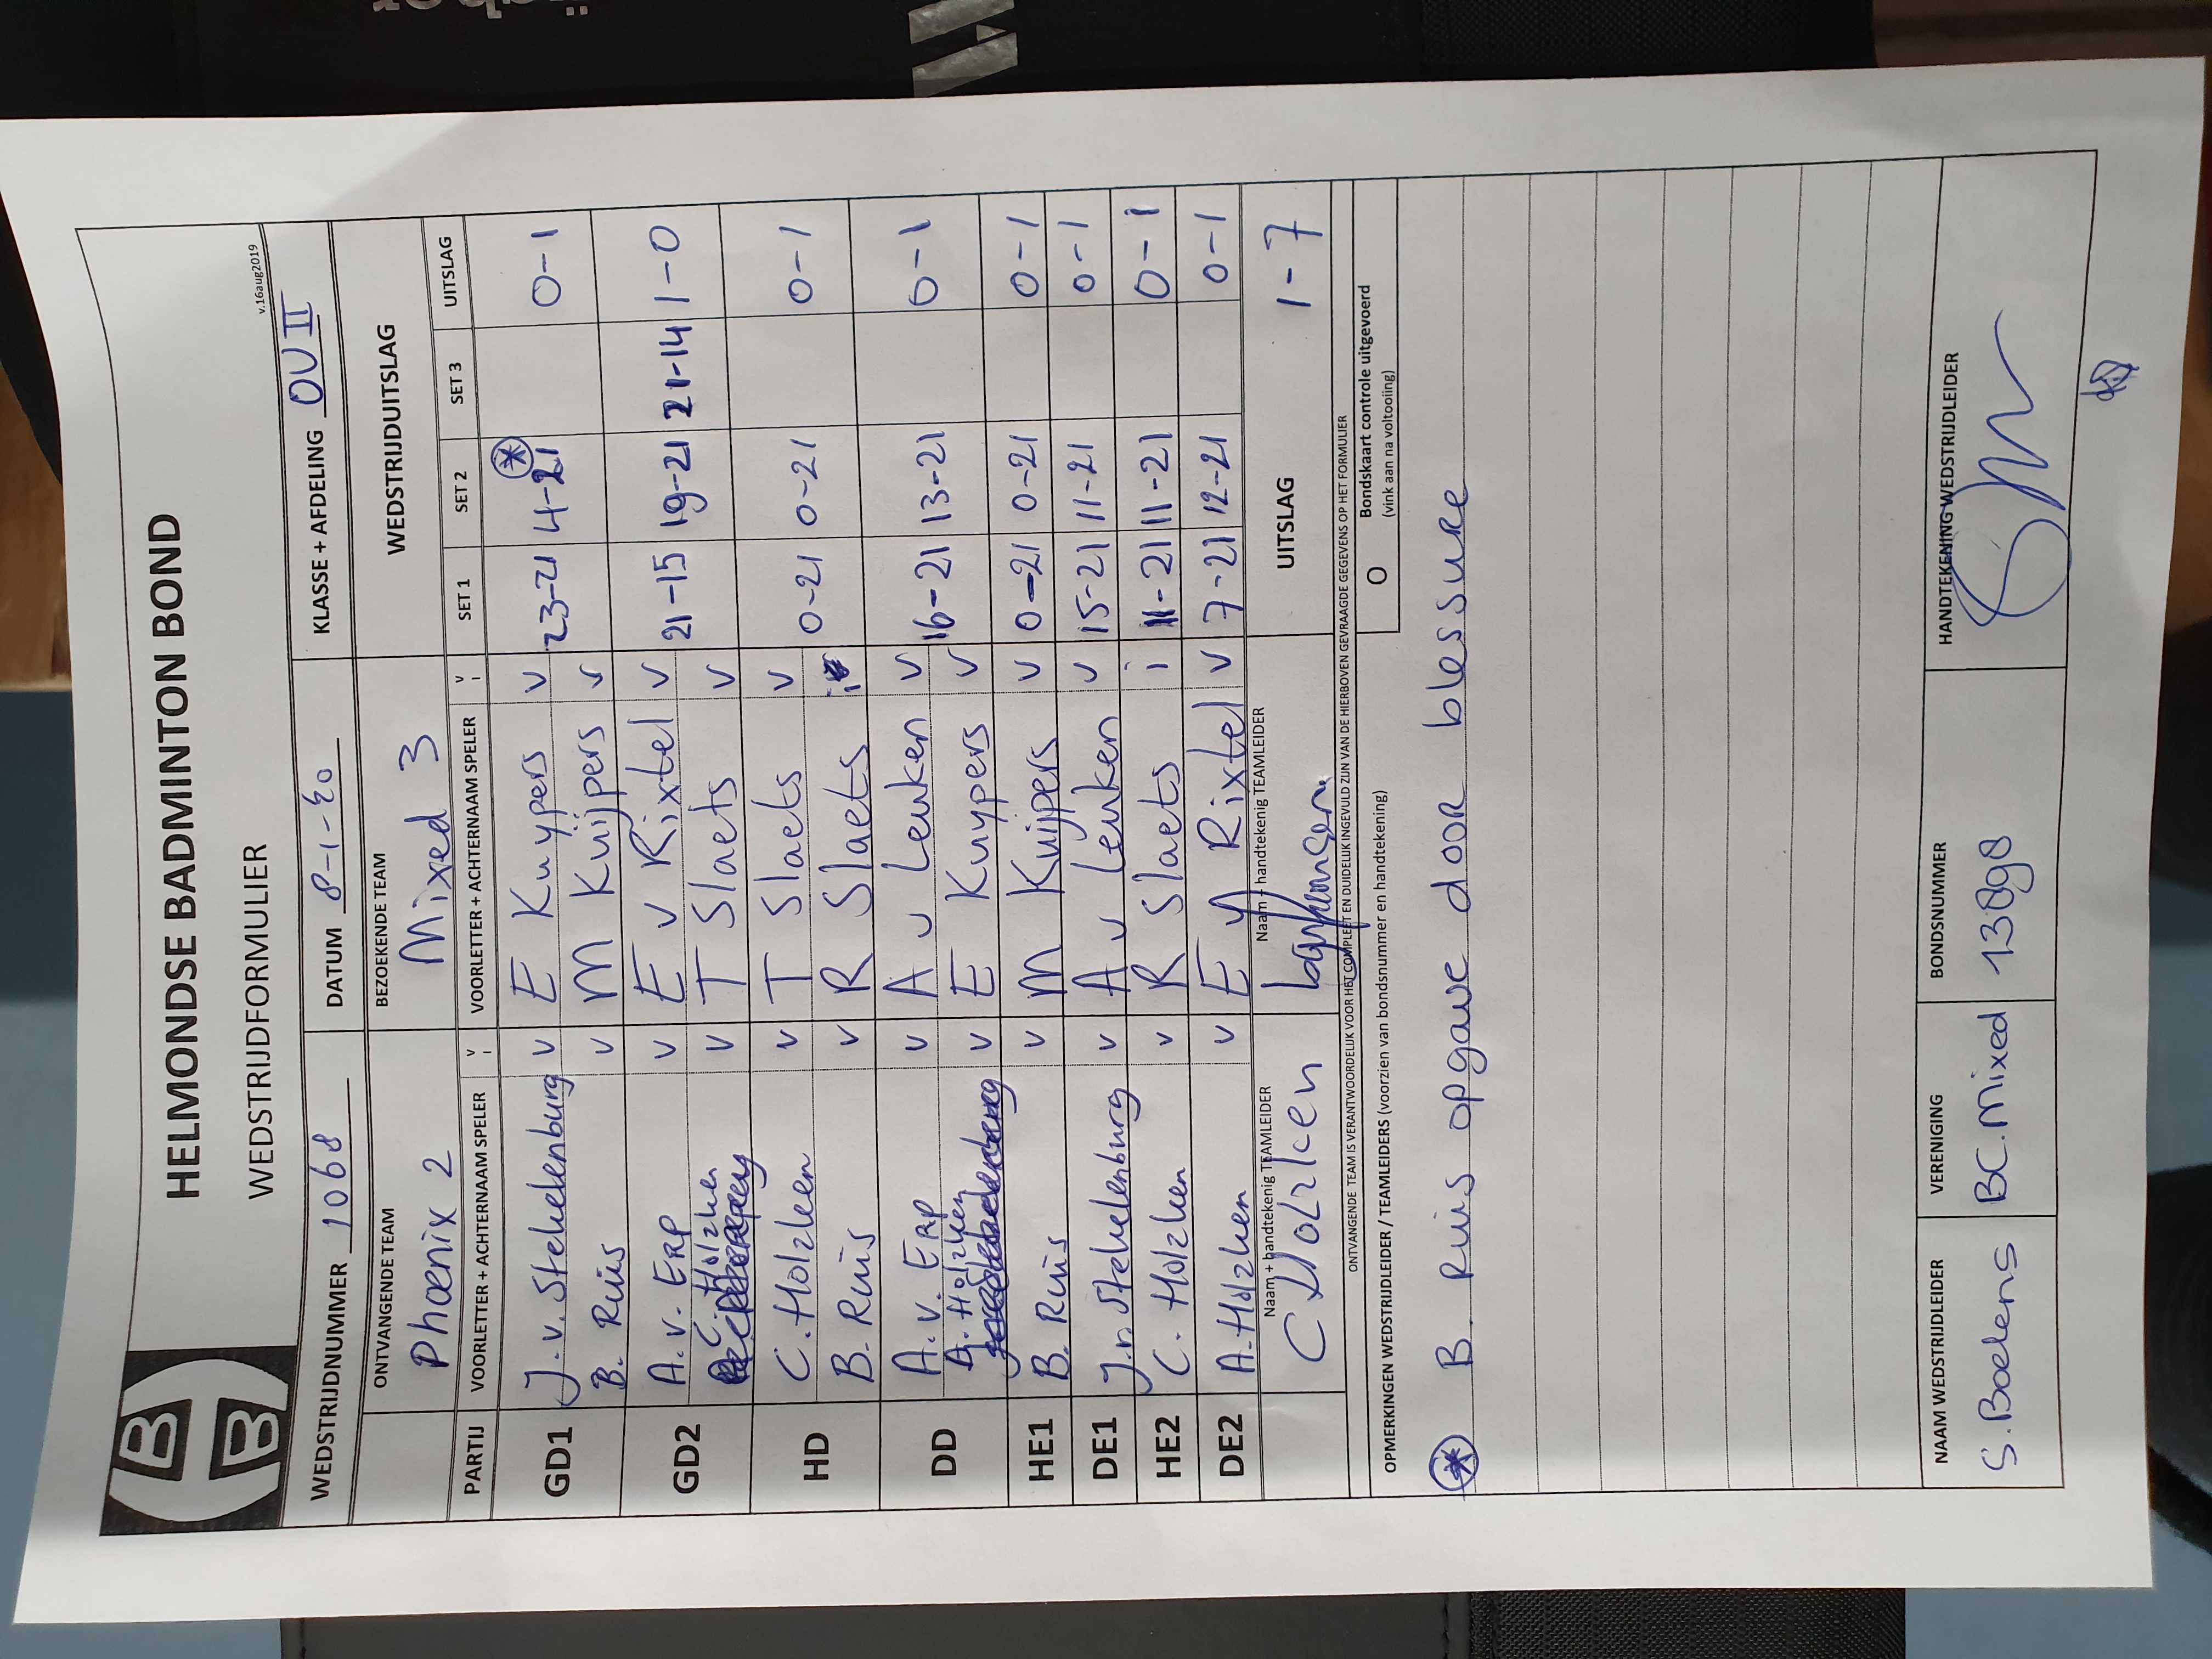 HELMONDSE BADMINTON BOND
WEDSTRIJDFORMULIER
v.16aug2019
WEDSTRIJDNUMMER 1068 DATUM 8-1-20 KLASSE + AFDELING OV II
ONTVANGENDE TEAM BEZOEKENDE TEAM WEDSTRIJDUITSLAG
Phoenix 2 Mixed 3
PARTIJ VOORLETTER + ACHTERNAAM SPELER V I VOORLETTER + ACHTERNAAM SPELER V I SET 1 SET 2 SET 3 UITSLAG
GD1 J. v. Stekelenburg v E Kuypers v 23-21 4-21 * 0-1
B. Ruis v M Kuijpers v
GD2 A. v. ERP v E v Rixtel v 21-15 19-21 21-14 1-0
C. Holzken v T Slaets v
HD C. Holzken v T Slaets v 0-21 0-21 0-1
B. Ruis v R Slaets i
DD A. v. ERP v A v Leuken v 16-21 13-21 0-1
A. Holzken v E Kuypers v
HE1 B. Ruis v M Kuijpers v 0-21 0-21 0-1
DE1 J. v. Stekelenburg v A v Leuken v 15-21 11-21 0-1
HE2 C. Holzken v R Slaets i 11-21 11-21 0-1
DE2 A. Holzken v E v Rixtel v 7-21 12-21 0-1
Naam + handtekenig TEAMLEIDER Naam + handtekenig TEAMLEIDER UITSLAG 1-7
C Holzken
ONTVANGENDE TEAM IS VERANTWOORDELIJK VOOR HET COMPLEET EN DUIDELIJK INGEVULD ZIJN VAN DE HIERBOVEN GEVRAAGDE GEGEVENS OP HET FORMULIER
OPMERKINGEN WEDSTRIJDLEIDER / TEAMLEIDERS (voorzien van bondsnummer en handtekening) O Bondskaart controle uitgevoerd
(vink aan na voltooiing)
* B Ruis opgave door blessure
NAAM WEDSTRIJDLEIDER VERENIGING BONDSNUMMER HANDTEKENING WEDSTRIJDLEIDER
S. Boelens BC. Mixed 13898